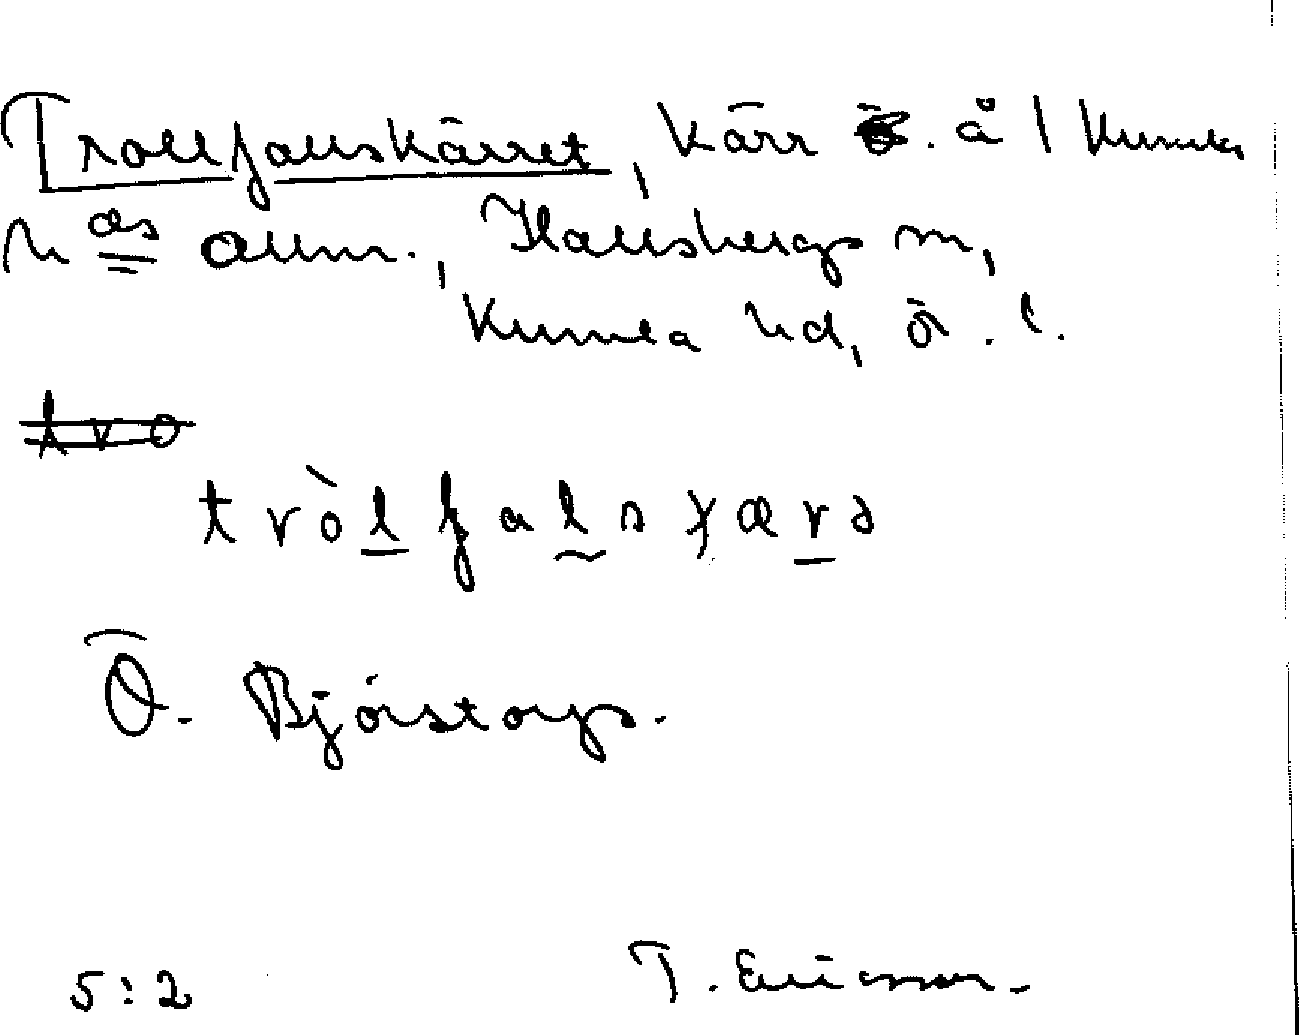 Trollfallskärret, kärr ö. å l Kumla
h ds allm., Hallsbergs sn,
Kumla hd, ör. l.
tro
tròlfalsχærə
Ö. Björstorp.
5:2 T. Ericsson.